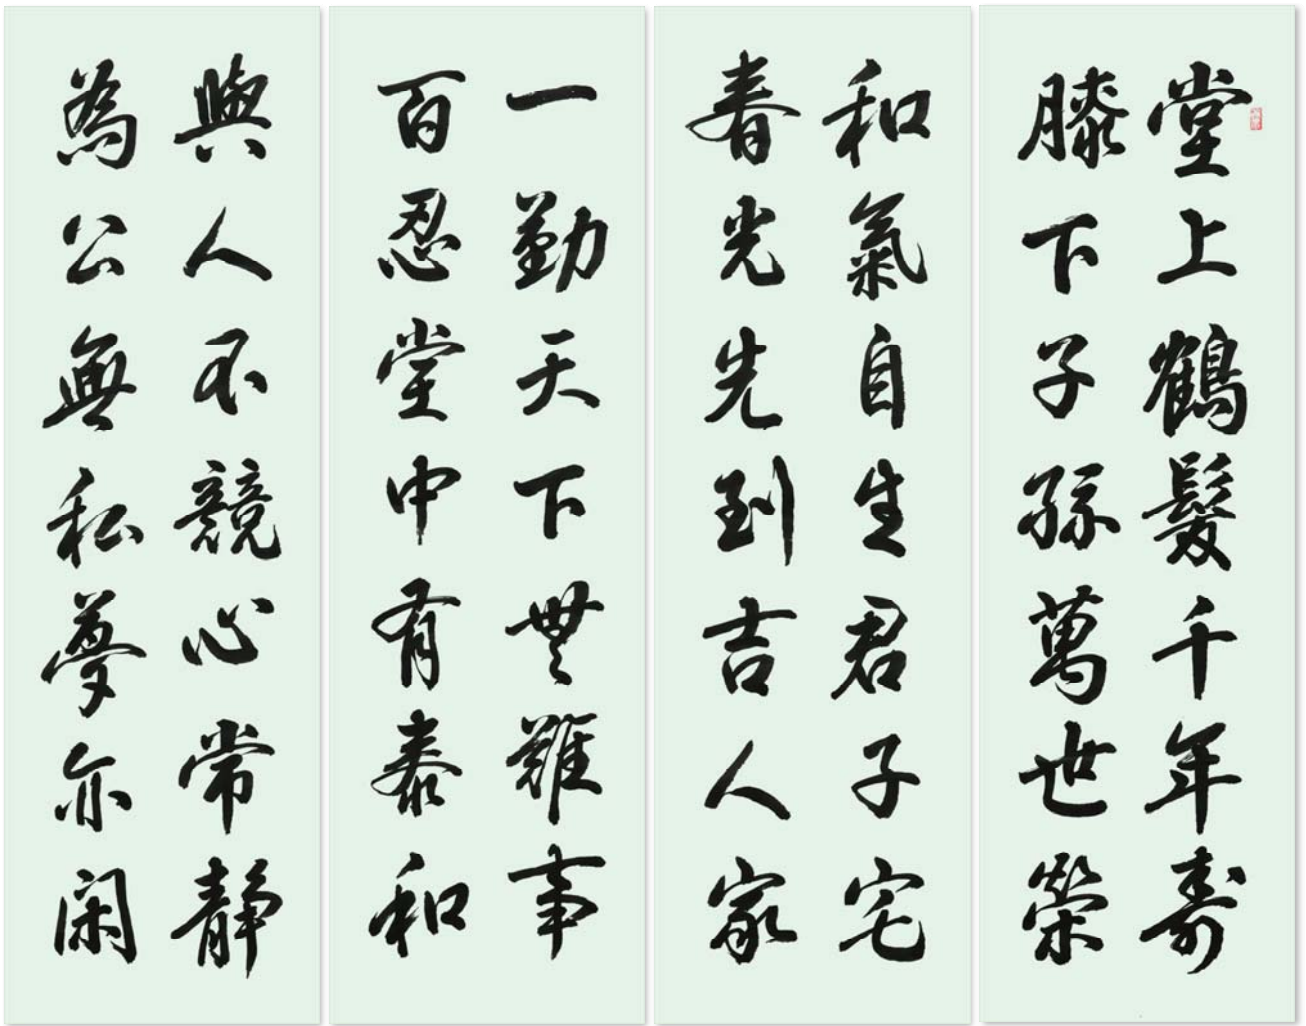 堂上鶴髮千年壽
膝下子孫萬世榮
和氣自生君子宅
春光先到吉人家
一勤天下無難事
百忍堂中有泰和
與人不競心常靜
為公無私夢亦閑